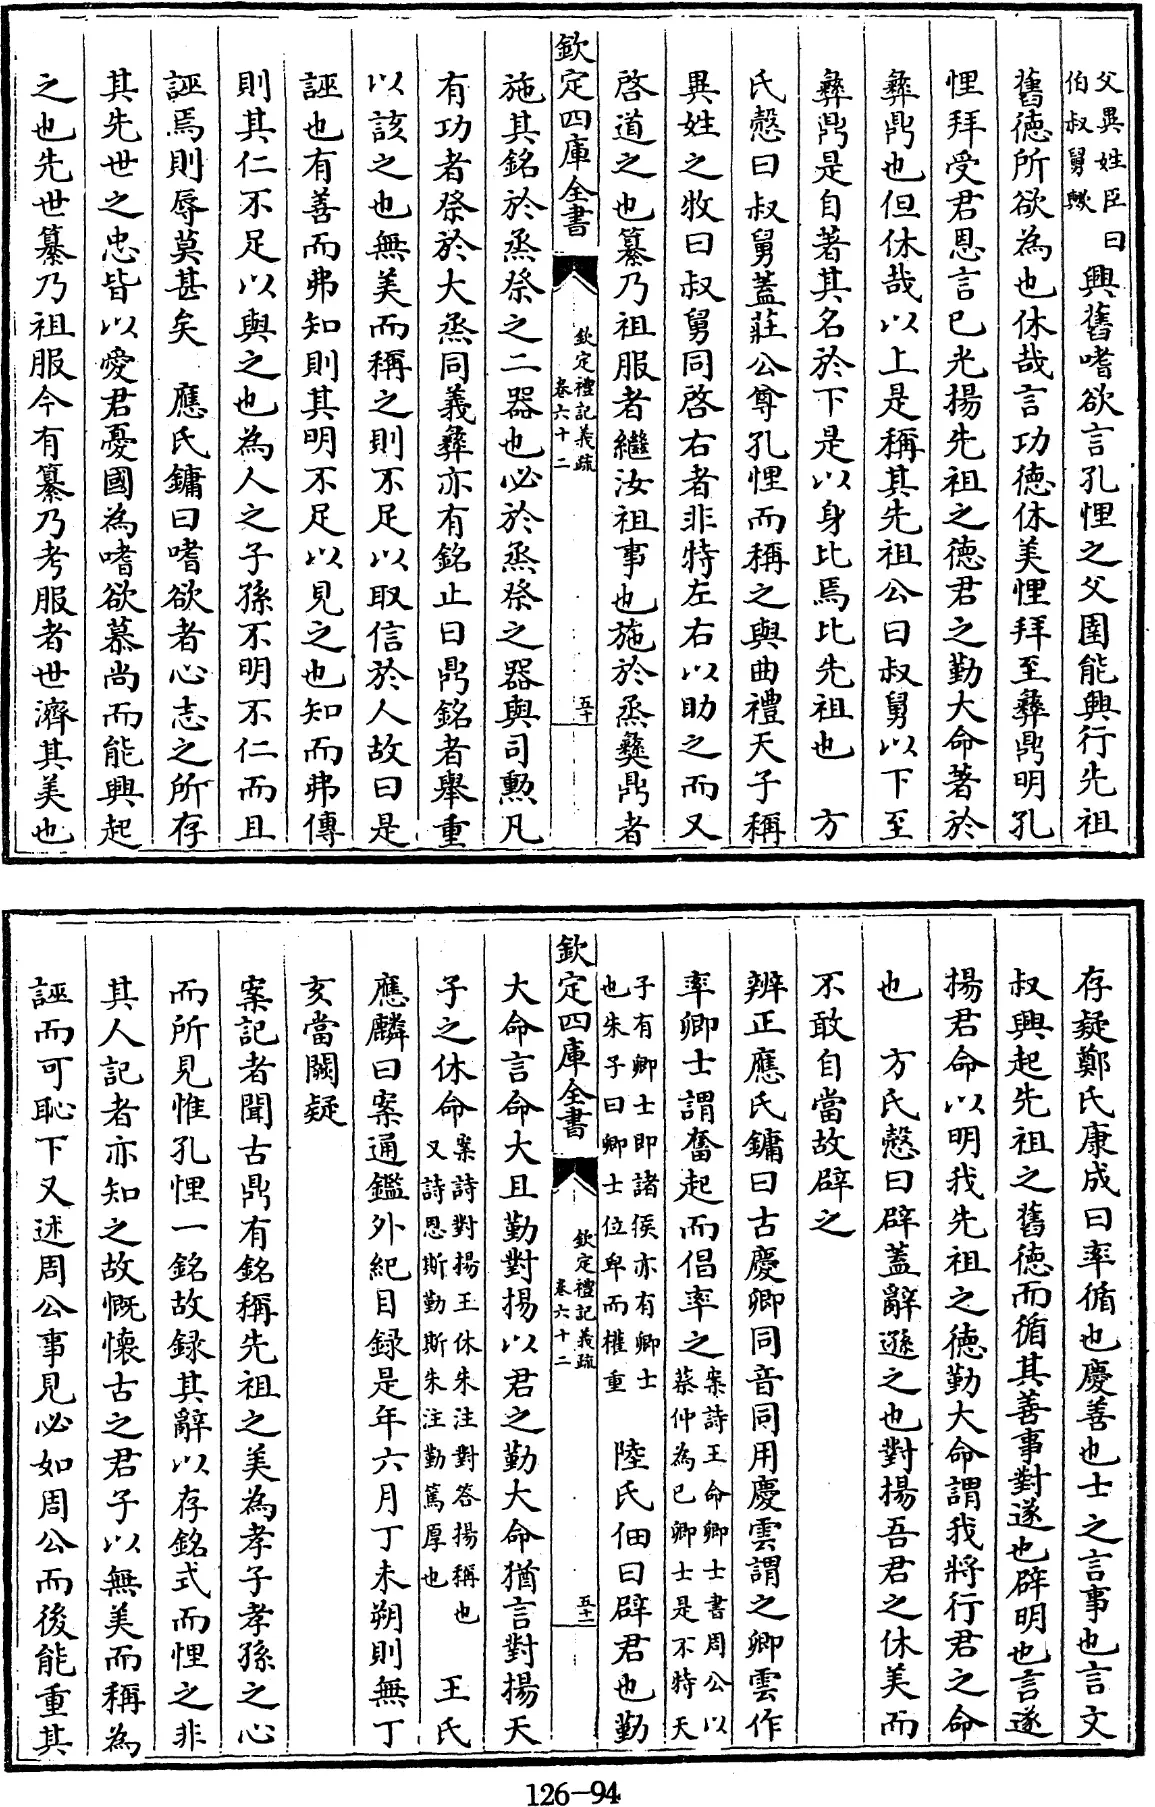 父異姓臣曰伯叔舅歟興舊嗜欲言孔悝之父圉能興行先祖
舊德所欲為也休哉言功德休美悝拜至彝鼎明孔
悝拜受君恩言已光揚先祖之德君之勤大命著於
彝鼎也但休哉以上是稱其先祖公曰叔舅以下至
彝鼎是自著其名於下是以身比焉比先祖也 方
氏慤曰叔舅蓋莊公尊孔悝而稱之與曲禮天子稱
異姓之牧曰叔舅同啓右者非特左右以助之而又
啓道之也纂乃祖服者繼汝祖事也施於烝彝鼎者
欽定四庫全書 欽定禮記義疏 卷六十二 五十
施其銘於烝祭之二器也必於烝祭之器與司勲凡
有功者祭於大烝同義彝亦有銘止曰鼎銘者舉重
以該之也無美而稱之則不足以取信於人故曰是
誣也有善而弗知則其明不足以見之也知而弗傳
則其仁不足以與之也為人之子孫不明不仁而且
誣焉則辱莫甚矣 應氏鏞曰嗜欲者心志之所存
其先世之忠皆以愛君憂國為嗜欲慕尚而能興起
之也先世纂乃祖服今有纂乃考服者世濟其美也
存疑鄭氏康成曰率循也慶善也士之言事也言文
叔興起先祖之舊德而循其善事對遂也辟明也言遂
揚君命以明我先祖之德勤大命謂我將行君之命
也 方氏慤曰辟蓋辭遜之也對揚吾君之休美而
不敢自當故辟之
辨正應氏鏞曰古慶卿同音同用慶雲謂之卿雲作
率卿士謂奮起而倡率之案詩王命卿士書周公以蔡仲為己卿士是不特天
子有卿士即諸侯亦有卿士也朱子曰卿士位卑而權重 陸氏佃曰辟君也勤
欽定四庫全書 欽定禮記義疏 卷六十二 五十一
大命言命大且勤對揚以君之勤大命猶言對揚天
子之休命案詩對揚王休朱注對答揚稱也又詩恩斯勤斯朱注勤篤厚也 王氏
應麟曰案通鑑外紀目録是年六月丁未朔則無丁
亥當闕疑
案記者聞古鼎有銘稱先祖之美為孝子孝孫之心
而所見惟孔悝一銘故録其辭以存銘式而悝之非
其人記者亦知之故慨懷古之君子以無美而稱為
誣而可恥下又述周公事見必如周公而後能重其
126-94